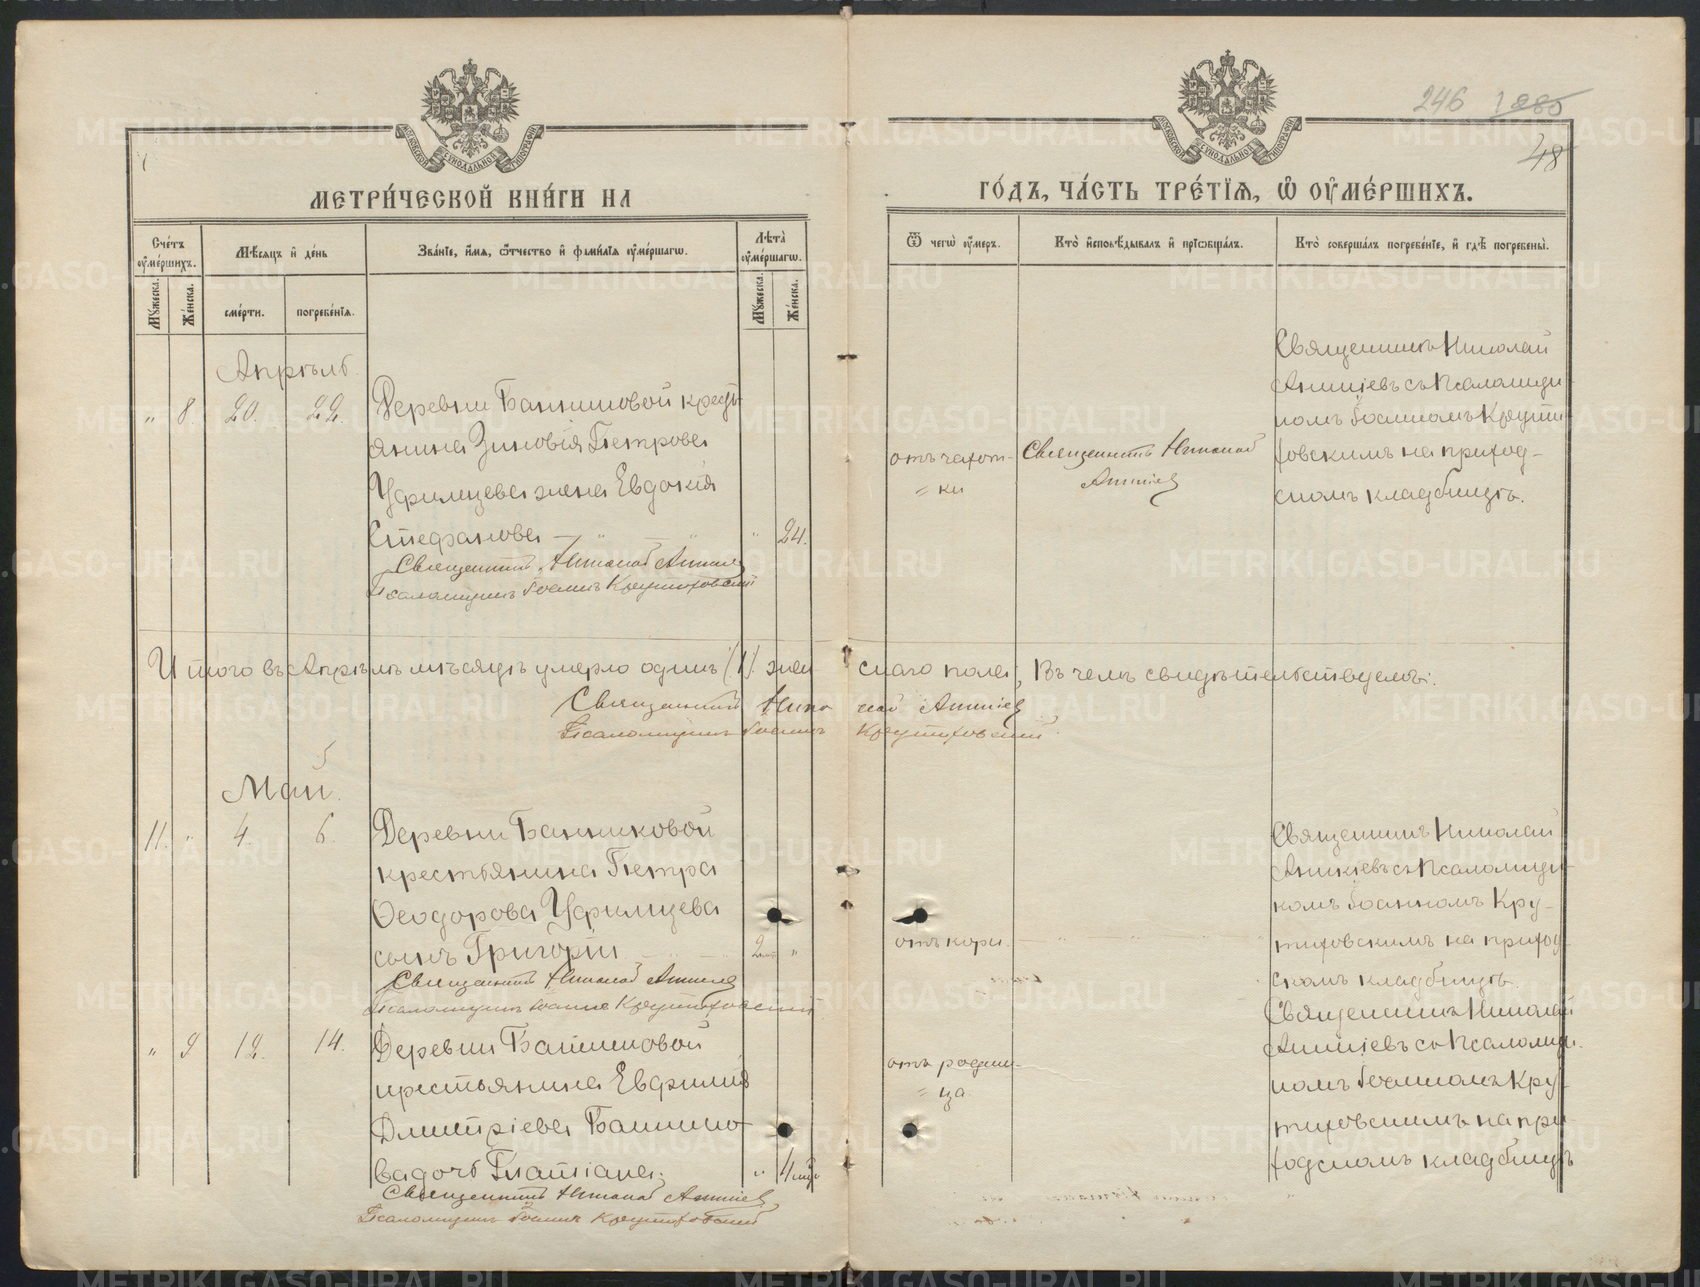 246 1885
48
МЕТРИ́ЧЕСКОЙ КНИ́ГИ НА
ГО́ДЪ, ЧА́СТЬ ТРЕ́ТІѦ, Ѡ҆ ОУ҆МЕ́РШИХЪ.
Сче́тъ оу҆ме́ршихъ.
Мѣ́сяцъ и҆ де́нь
Зва́нїе, и҆́мѧ, ѻ҆́тчество и҆ фамилїѧ оу҆ме́ршагѡ.
Лѣ́та оу҆ме́ршагѡ.
Мꙋжеска. Же́нска.
сме́рти. погребе́нїѧ.
Мꙋжеска. Же́нска.
Ѿ чегѡ̀ оу҆́меръ.
Кто̀ и҆сповѣ́дывалъ и҆ прїѡбща́лъ.
Кто̀ соверша́лъ погребе́нїе, и҆ гдѣ̀ погребены̀.
Апрѣль.
" 8. 20. 22.
Деревни Банниковой кресть
янина Зиновія Петрова
Уфимцева жена Евдокія
Стефанова " 24.
Священникъ Николай Аникіев
Псаломщикъ Іоаннъ Крутиховскій
отъ чахот-
= ки
Священникъ Николай
Аникіев
Священникъ Николай
Аникіевъ съ Псаломщи
комъ Іоанномъ Крути
ховскимъ на приход-
скомъ кладбищѣ.
Итого въ Апрѣлѣ мѣсяцѣ умерло одинъ (1). жен скаго пола, Въ чемъ свидѣтельствуемъ:
Священникъ Николай Аникіев
Псаломщикъ Іоаннъ Крутиховскій.
Май.
11. " 4. 6.
Деревни Банниковой
крестьянина Петра
Ѳеодорова Уфимцева
сынъ Григорій "
Священникъ Николай Аникіев
Псаломщикъ Іоаннъ Крутиховскій
отъ кори.
Священникъ Николай
Аникіевъ съ Псаломщи
комъ Іоанномъ Кру-
тиховскимъ на приход-
скомъ кладбищѣ.
" 9 12. 14.
Деревни Банниковой
крестьянина Евфимія
Дмитріева Баннико-
ва дочь Татіана. "
Священникъ Николай Аникіев
Псаломщикъ Іоаннъ Крутиховскій
отъ родим-
= ца
Священникъ Николай
Аникіевъ съ Псаломщи-
комъ Іоанномъ Кру-
тиховскимъ на при-
ходскомъ кладбищѣ
METRIKI.GASO-URAL.RU